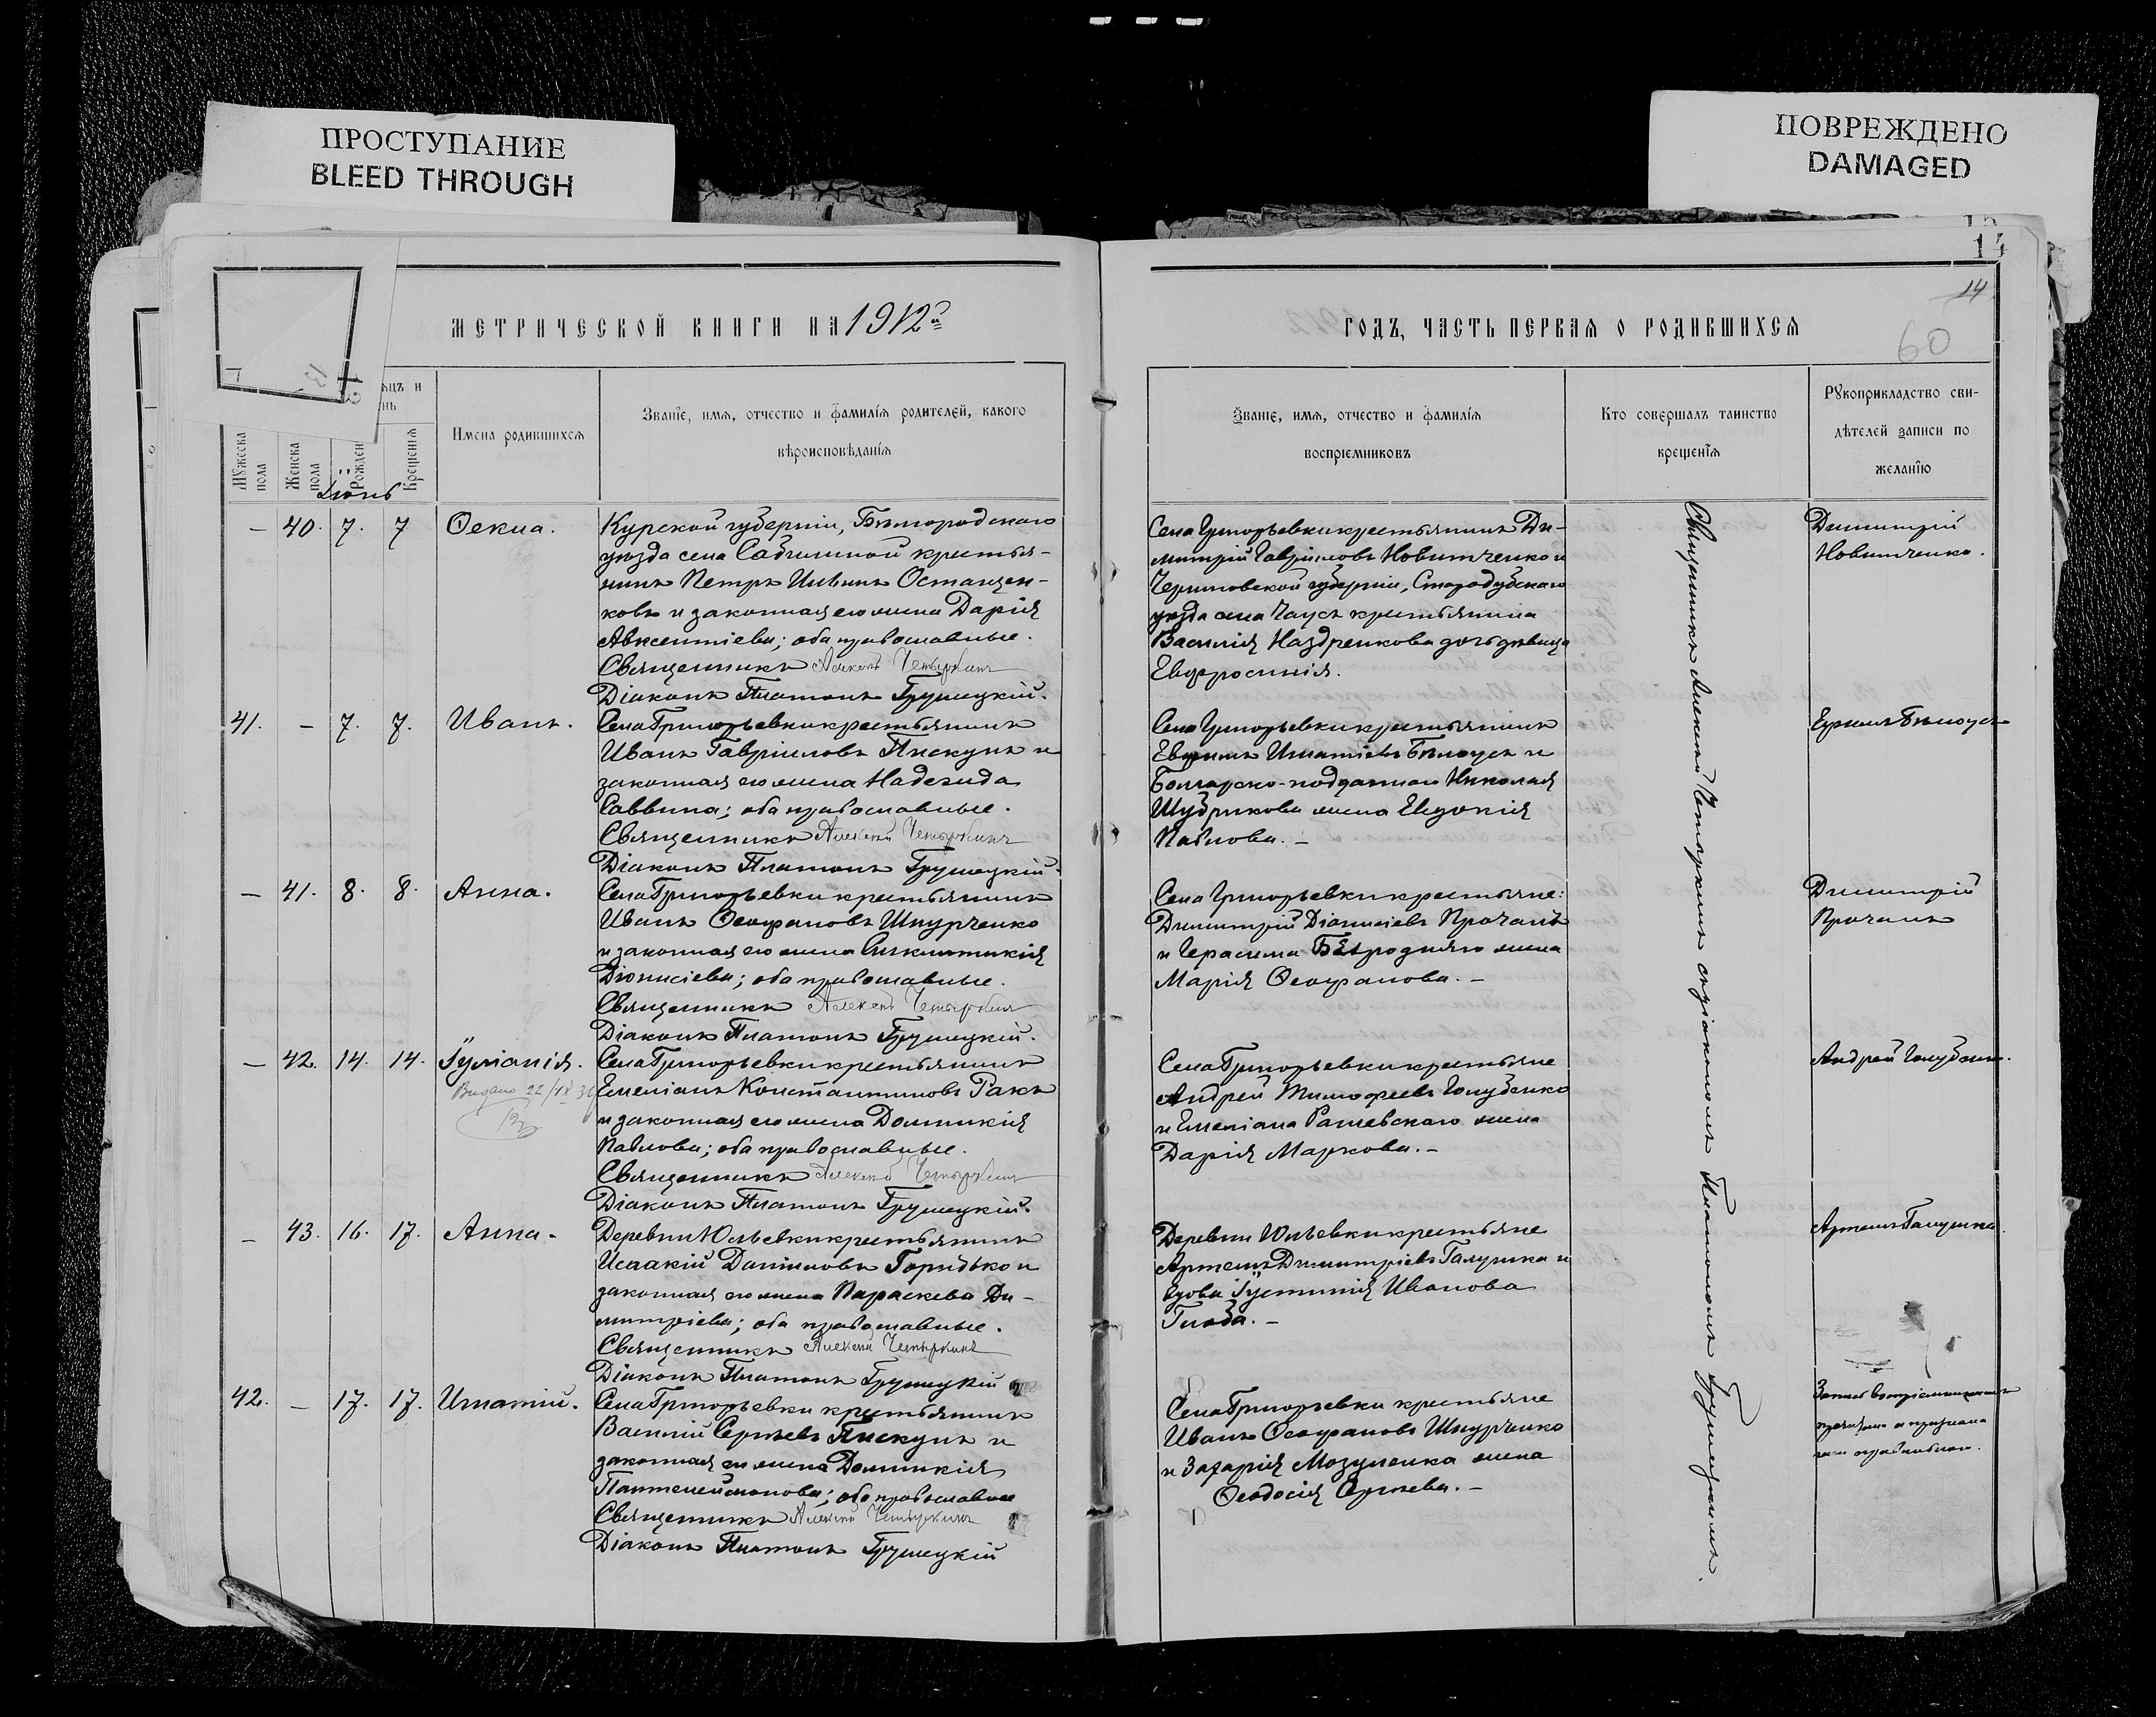 ПРОСТУПАНИЕ
BLEED THROUGH
ПОВРЕЖДЕНО
DAMAGED
14
14
60
МЕТРИЧЕСКОЙ КНИГИ НА 1912й
ГОДЪ, ЧАСТЬ ПЕРВАЯ О РОДИВШИХСЯ
Мужеска пола
Женска пола
Крещенія
Имена родившихся
Званіе, имя, отчество и фамилія родителей, какого
вѣроисповѣданія
Званіе, имя, отчество и фамилія
воспріемниковъ
Кто совершалъ таинство
крещенія
Рукоприкладство сви-
дѣтелей записи по
желанію
Іюнь
— 40. 7. 7 Ѳекла.
Курской губерніи, Бѣлгородскаго
уѣзда села крестья-
нинъ Петръ Ильинъ Останцен-
ковъ и законная его жена Дарія
Авксентіева; оба православные.
Священникъ Алексѣй Четыркинъ
Діаконъ Платонъ Грушецкій.
Села Григорьевки крестьянинъ Ди-
митрій Гавріиловъ Новитченко и
Черниговской губерніи, Стародубскаго
уѣзда села Чаусъ крестьянина
Василія Наздренкова дочь дѣвица
Евфросинія.
Димитрій
Новитченко.
41. — 7. 7. Иванъ.
Села Григорьевки крестьянинъ
Иванъ Гавріиловъ Пискунъ и
законная его жена Надежда
Саввина; оба православные.
Священникъ Алексѣй Четыркинъ
Діаконъ Платонъ Грушецкій.
Села Григорьевки крестьянинъ
Евфимъ Игнатіевъ Бѣлоусъ и
Болгарско-подданнаго Николая
Шудрикова жена Евдокія
Павлова. —
Ефимъ Бѣлоусъ
— 41. 8. 8. Анна.
Села Григорьевки крестьянинъ
Иванъ Ѳеофановъ Шнурченко
и законная его жена Синклитикія
Діонисіева; оба православные.
Священникъ Алексѣй Четыркинъ
Діаконъ Платонъ Грушецкій.
Села Григорьевки крестьяне:
Димитрій Діонисіевъ Прочанъ
и Герасима Безроднаго жена
Марія Ѳеофанова. —
Димитрій
Прочанъ
— 42. 14. 14. Іуліанія.
Видано 22/IX 36
Села Григорьевки крестьянинъ
Емеліанъ Константиновъ Ракъ
и законная его жена Домникія
Павлова; оба православные.
Священникъ Алексѣй Четыркинъ
Діаконъ Платонъ Грушецкій.
Села Григорьевки крестьяне
Андрей Тимофеевъ Голубенко
и Емеліана Рашевскаго жена
Дарія Маркова. —
Андрей Голубенко.
— 43. 16. 17. Анна.
Деревни Юльевки крестьянинъ
Исаакій Даніиловъ Горидько и
законная его жена Параскева Ди-
митріева; оба православные.
Священникъ Алексѣй Четыркинъ
Діаконъ Платонъ Грушецкій
Деревни Юльевки крестьяне
Артемъ Димитріевъ Галушка и
вдова Іустинія Иванова
Глоба. —
Артемъ Галушка.
42. — 17. 17. Игнатій.
Села Григорьевки крестьянинъ
Василій Сергѣевъ Пискунъ и
законная его жена Домникія
Пантелеймонова; оба православные
Священникъ Алексѣй Четыркинъ
Діаконъ Платонъ Грушецкій
Села Григорьевки крестьяне
Иванъ Ѳеофановъ Шнурченко
и Захарія Мозуленка жена
Ѳеодосія Сергѣева. —
Запись воспріемникамъ
прочитана и признана
ими правильною.
Священникъ Алексѣй Четыркинъ съ діакономъ Платономъ Грушецкимъ.